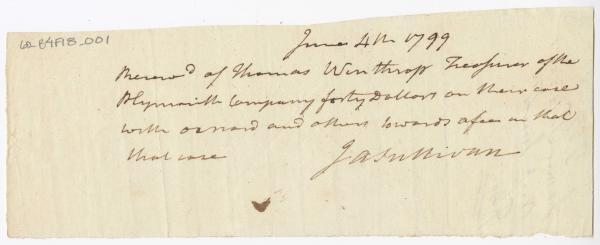 W-E4F18_001
June 4th 1799
Receiv'd of Thomas Winthrop Treasurer of the
Plymouth Company forty Dollars on their case
with and others towards a fee in that
that case
Ja Sullivan